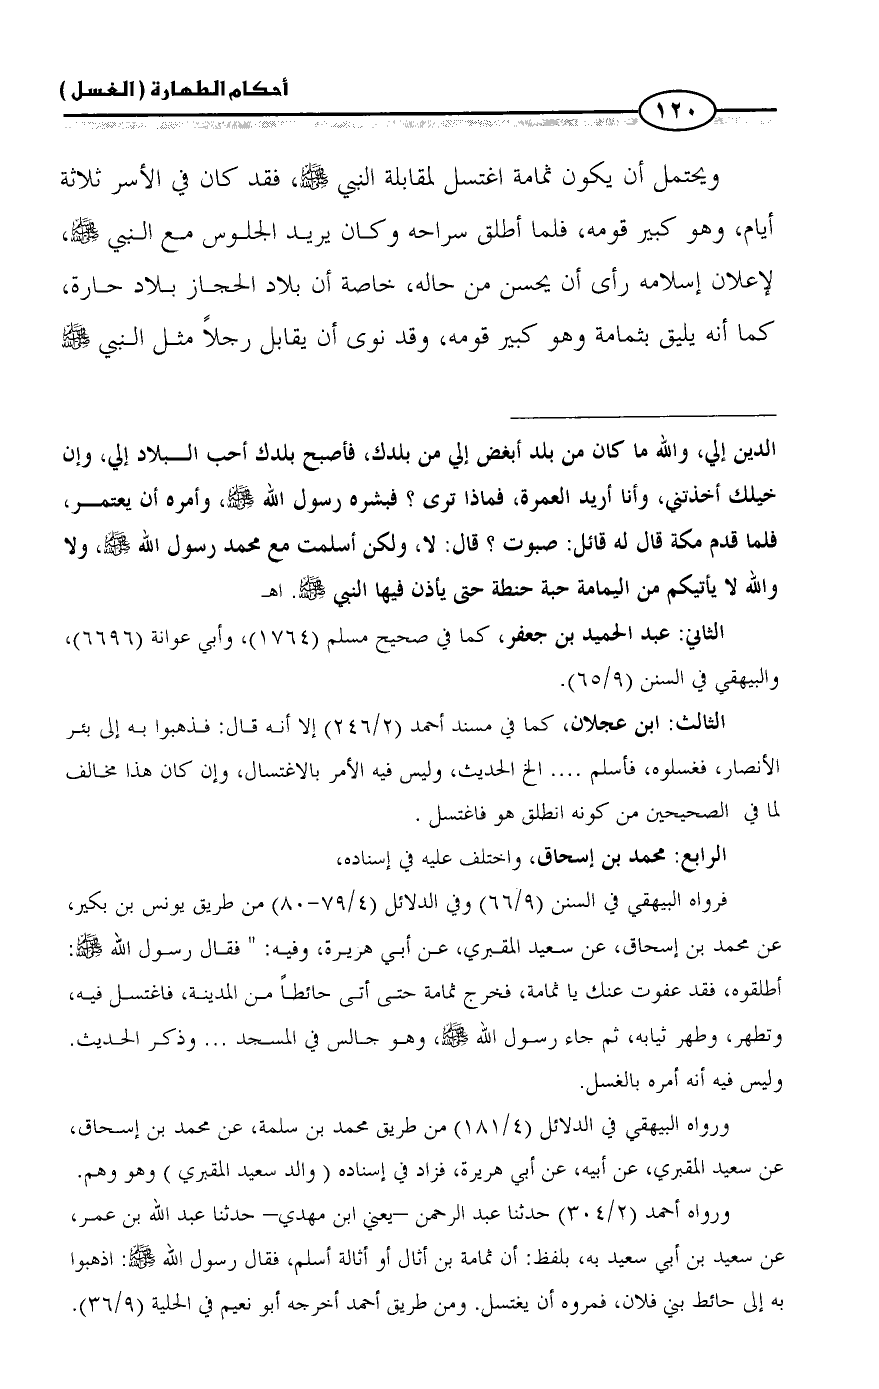 أحكام الطهارة (الغسل)
١٢٠
ويحتمل أن يكون ثمامة اغتسل لمقابلة النبي ﷺ، فقد كان في الأسر ثلاثة
أيام، وهو كبير قومه، فلما أطلق سراحه وكان يريد الجلوس مع النبي ﷺ،
لإعلان إسلامه رأى أن يحسن من حاله، خاصة أن بلاد الحجاز بلاد حارة،
كما أنه يليق بثمامة وهو كبير قومه، وقد نوى أن يقابل رجلاً مثل النبي ﷺ
الدين إلي، والله ما كان من بلد أبغض إلي من بلدك، فأصبح بلدك أحب البلاد إلي، وإن
خيلك أخذتني، وأنا أريد العمرة، فماذا ترى ؟ فبشره رسول الله ﷺ، وأمره أن يعتمر،
فلما قدم مكة قال له قائل: صبوت ؟ قال: لا، ولكن أسلمت مع محمد رسول الله ﷺ، ولا
والله لا يأتيكم من اليمامة حبة حنطة حتى يأذن فيها النبي ﷺ. اهـ
الثاني: عبد الحميد بن جعفر، كما في صحيح مسلم (١٧٦٤)، وأبي عوانة (٦٦٩٦)،
والبيهقي في السنن (٦٥/٩).
الثالث: ابن عجلان، كما في مسند أحمد (٢٤٦/٢) إلا أنه قال: فذهبوا به إلى بئر
الأنصار، فغسلوه، فأسلم .... الخ الحديث، وليس فيه الأمر بالاغتسال، وإن كان هذا مخالف
لما في الصحيحين من كونه انطلق هو فاغتسل .
الرابع: محمد بن إسحاق، واختلف عليه في إسناده،
فرواه البيهقي في السنن (٦٦/٩) وفي الدلائل (٧٩/٤-٨٠) من طريق يونس بن بكير،
عن محمد بن إسحاق، عن سعيد المقبري، عن أبي هريرة، وفيه: " فقال رسول الله ﷺ:
أطلقوه، فقد عفوت عنك يا ثمامة، فخرج ثمامة حتى أتى حائطاً من المدينة، فاغتسل فيه،
وتطهر، وطهر ثيابه، ثم جاء رسول الله ﷺ، وهو جالس في المسجد ... وذكر الحديث.
وليس فيه أنه أمره بالغسل.
ورواه البيهقي في الدلائل (١٨١/٤) من طريق محمد بن سلمة، عن محمد بن إسحاق،
عن سعيد المقبري، عن أبيه، عن أبي هريرة، فزاد في إسناده ( والد سعيد المقبري ) وهو وهم.
ورواه أحمد (٣٠٤/٢) حدثنا عبد الرحمن –يعني ابن مهدي– حدثنا عبد الله بن عمر،
عن سعيد بن أبي سعيد به، بلفظ: أن ثمامة بن أثال أو أثالة أسلم، فقال رسول الله ﷺ: اذهبوا
به إلى حائط بني فلان، فمروه أن يغتسل. ومن طريق أحمد أخرجه أبو نعيم في الحلية (٣٦/٩).